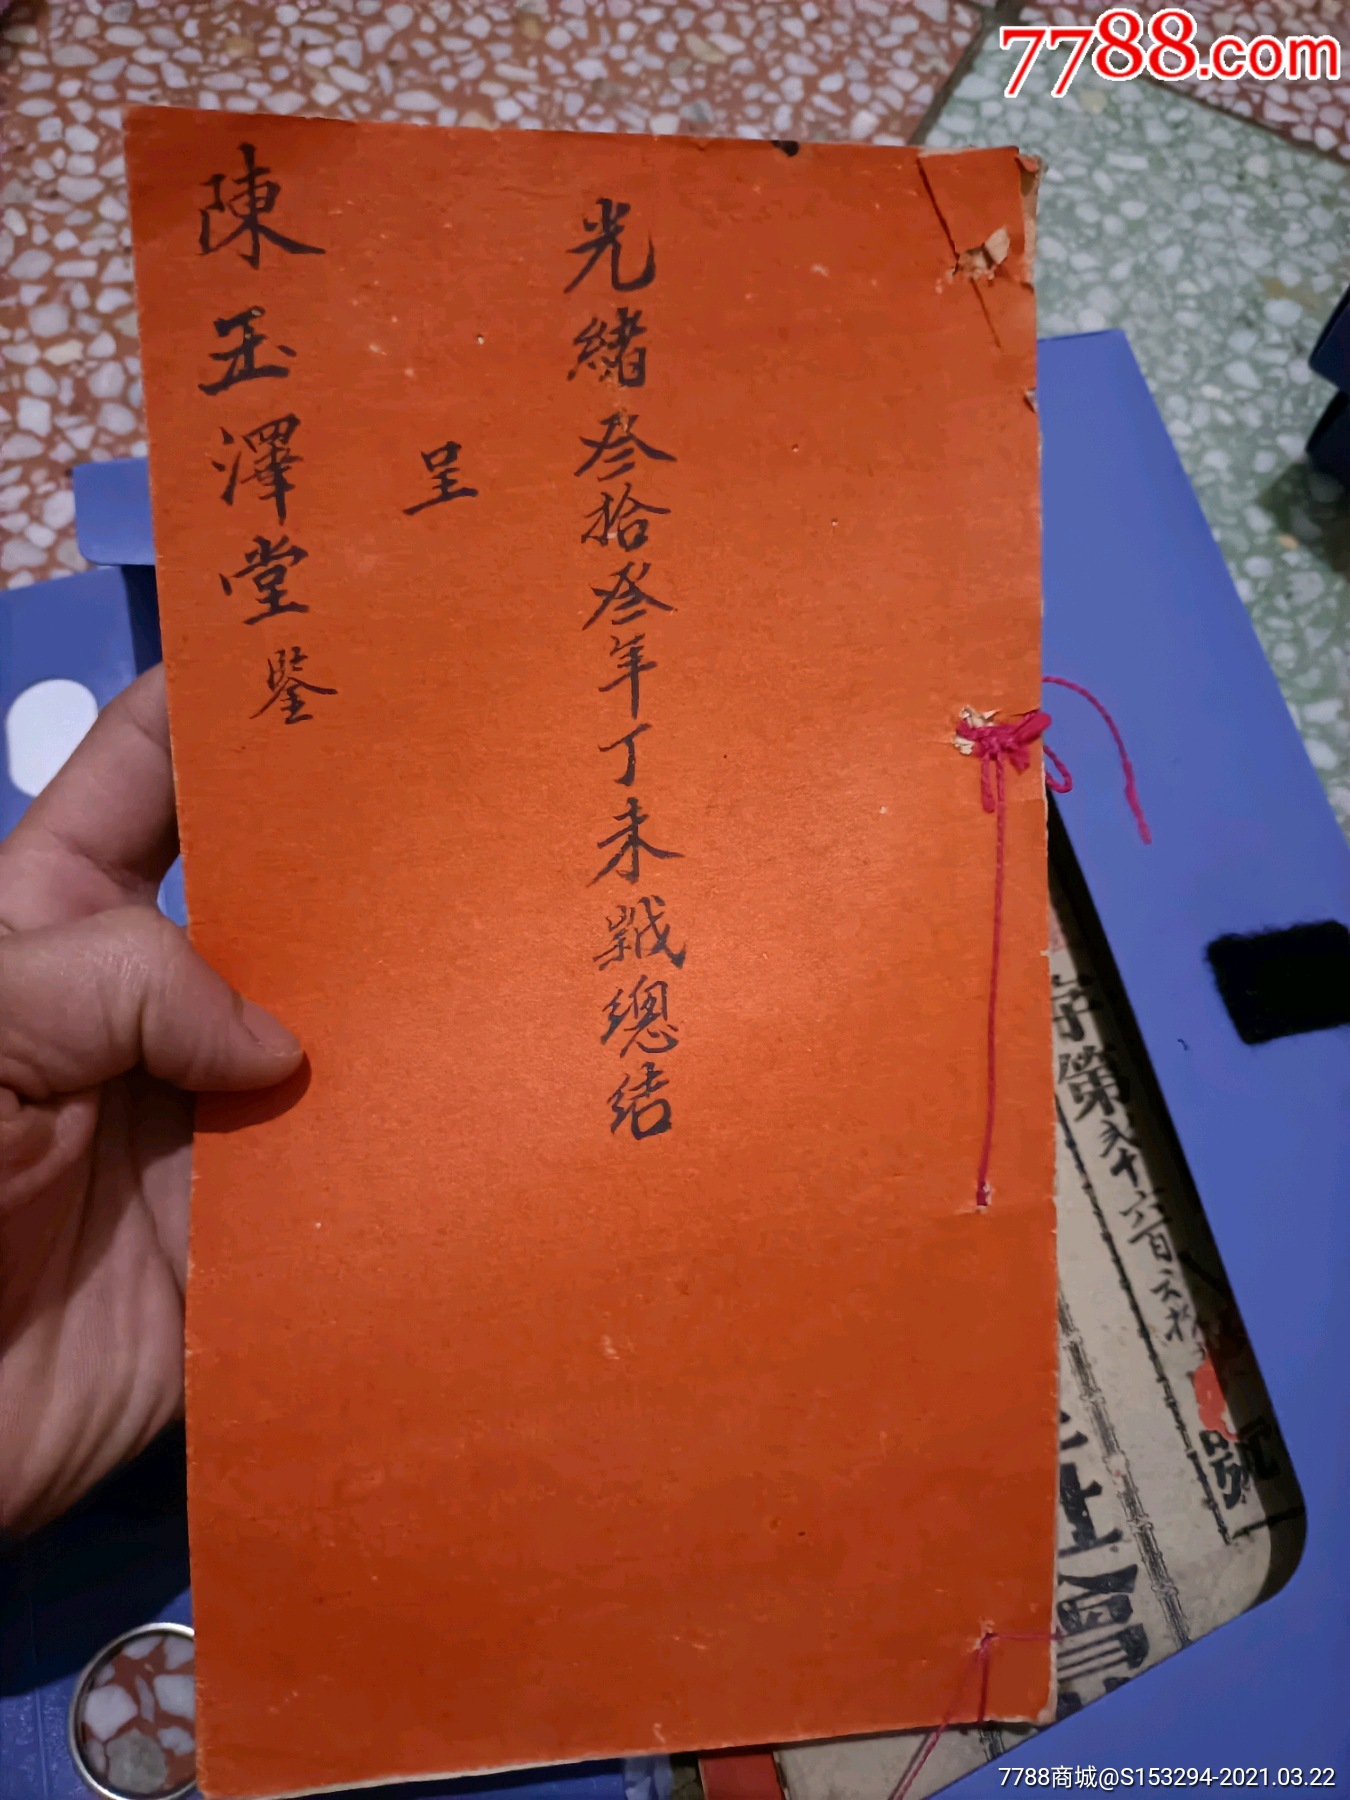 7788.com
光緒叁拾叁年丁未歲總结
呈
陳玉澤堂鑒
字第
號
會
7788商城@S153294-2021.03.22